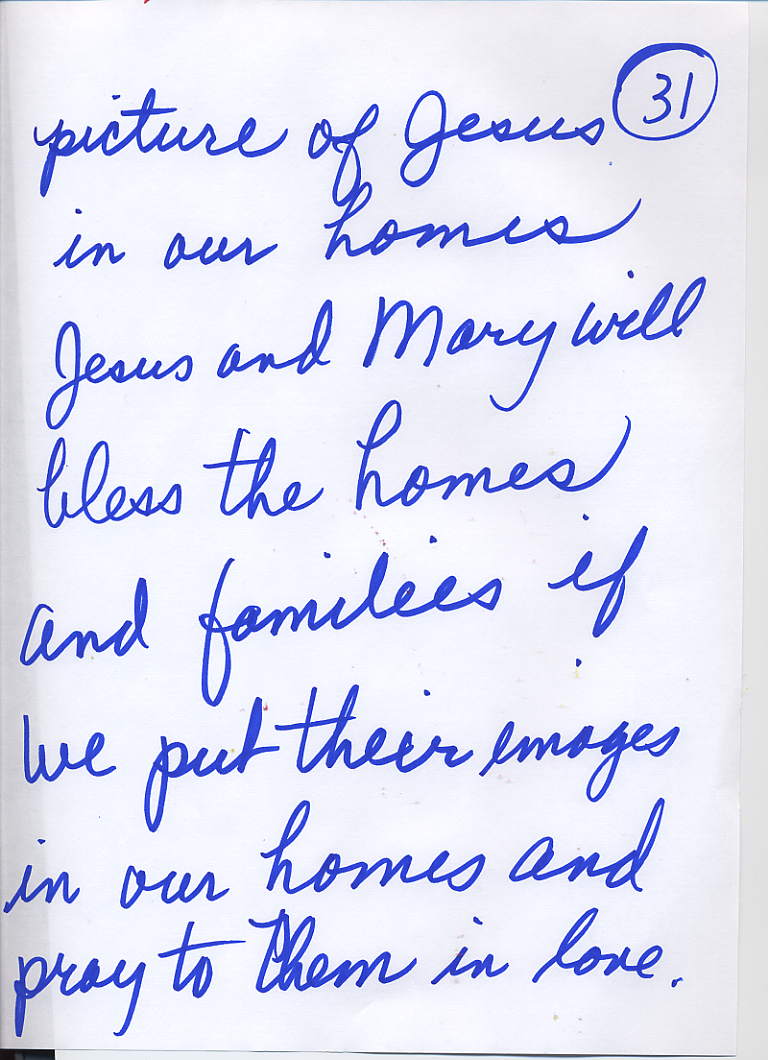 31
picture of Jesus
in our homes
Jesus and Mary will
bless the homes
and families if
we put their images
in our homes and
pray to them in love.